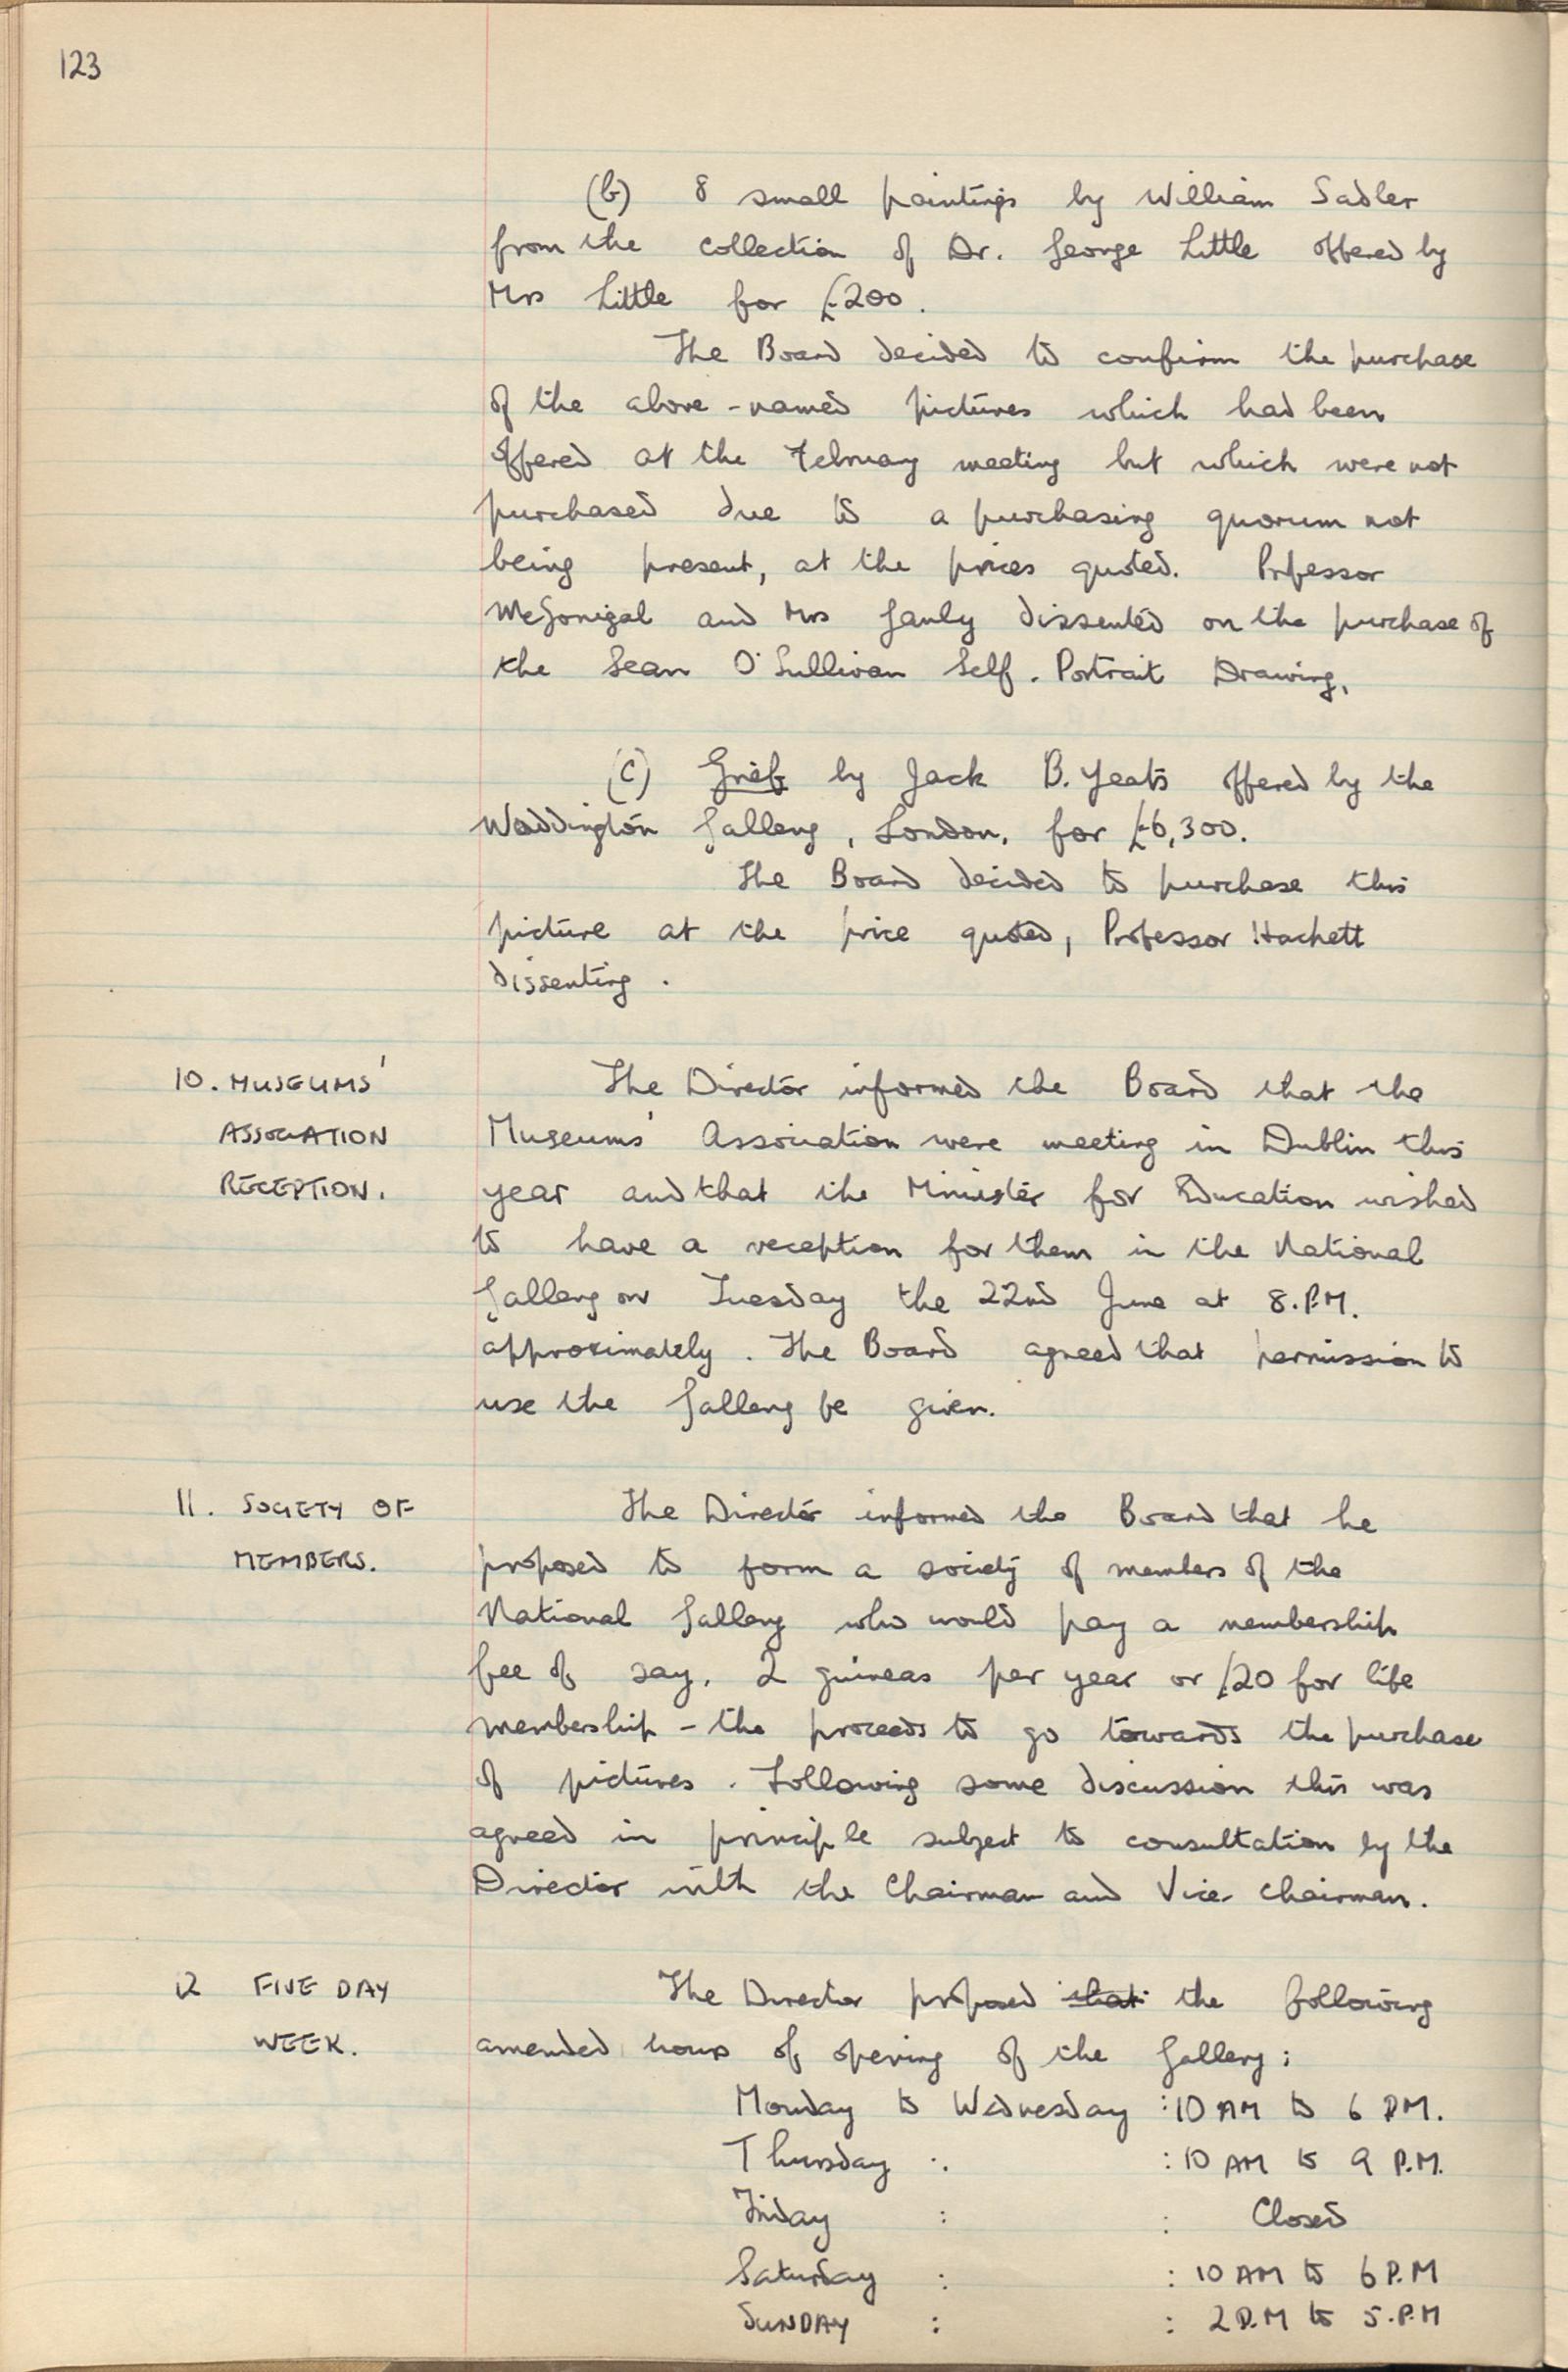 123
(b) 8 small paintings by William Sadler
from the collection of Dr. George Little offered by
Mrs Little for £200.
The Board decided to confirm the purchase
of the above-named pictures which had been
offered at the February meeting but which were not
purchased due to a purchasing quorum not
being present, at the prices quoted. Professor
McGonigal and Mrs Ganly dissented on the purchase of
the Sean O'Sullivan Self-Portrait Drawing.
(c) Grief by Jack B. Yeats offered by the
Waddington Gallery, London, for £6,300.
The Board decided to purchase this
picture at the price quoted, Professor Hackett
dissenting.
10. MUSEUMS'
ASSOCIATION
RECEPTION.
The Director informed the Board that the
Museums' Association were meeting in Dublin this
year and that the Minister for Education wished
to have a reception for them in the National
Gallery on Tuesday the 22nd June at 8.P.M.
approximately. The Board agreed that permission to
use the Gallery be given.
11. SOCIETY OF
MEMBERS.
The Director informed the Board that he
proposed to form a society of members of the
National Gallery who would pay a membership
fee of say, 2 guineas per year or £20 for life
membership - the proceeds to go towards the purchase
of pictures. Following some discussion this was
agreed in principle subject to consultation by the
Director with the Chairman and Vice-Chairman.
12 FIVE DAY
WEEK.
The Director proposed that the following
amended hours of opening of the Gallery:
Monday to Wednesday : 10 AM to 6 P.M.
Thursday : : 10 AM to 9 P.M.
Friday : : Closed
Saturday : : 10 AM to 6 P.M
SUNDAY : : 2 P.M to 5.P.M